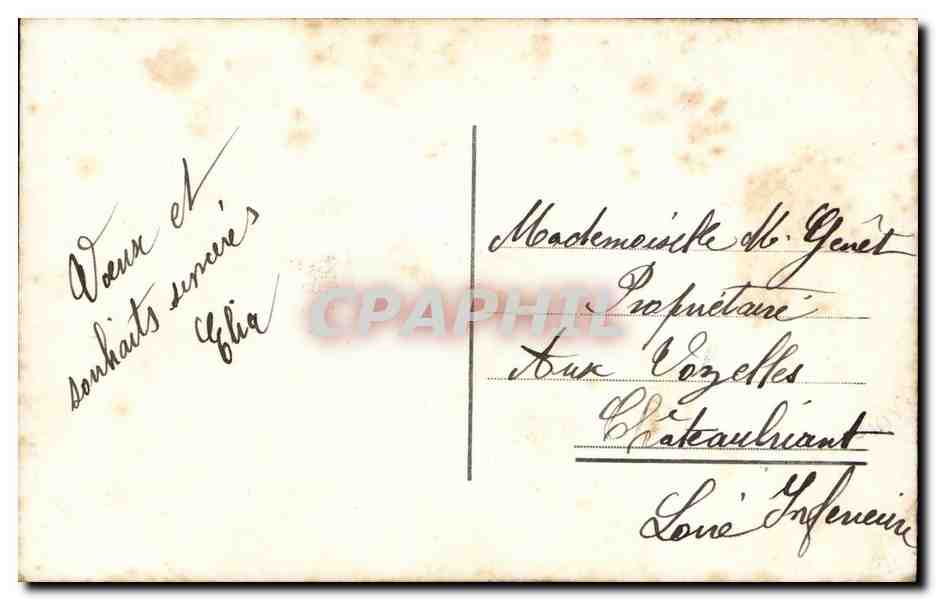 Vœux et
souhaits sincères
Elia
Mademoiselle M. Genêt
Propriétaire
Aux Vozelles
Châteaubriant
Loire Inferieure
CPAPHIL